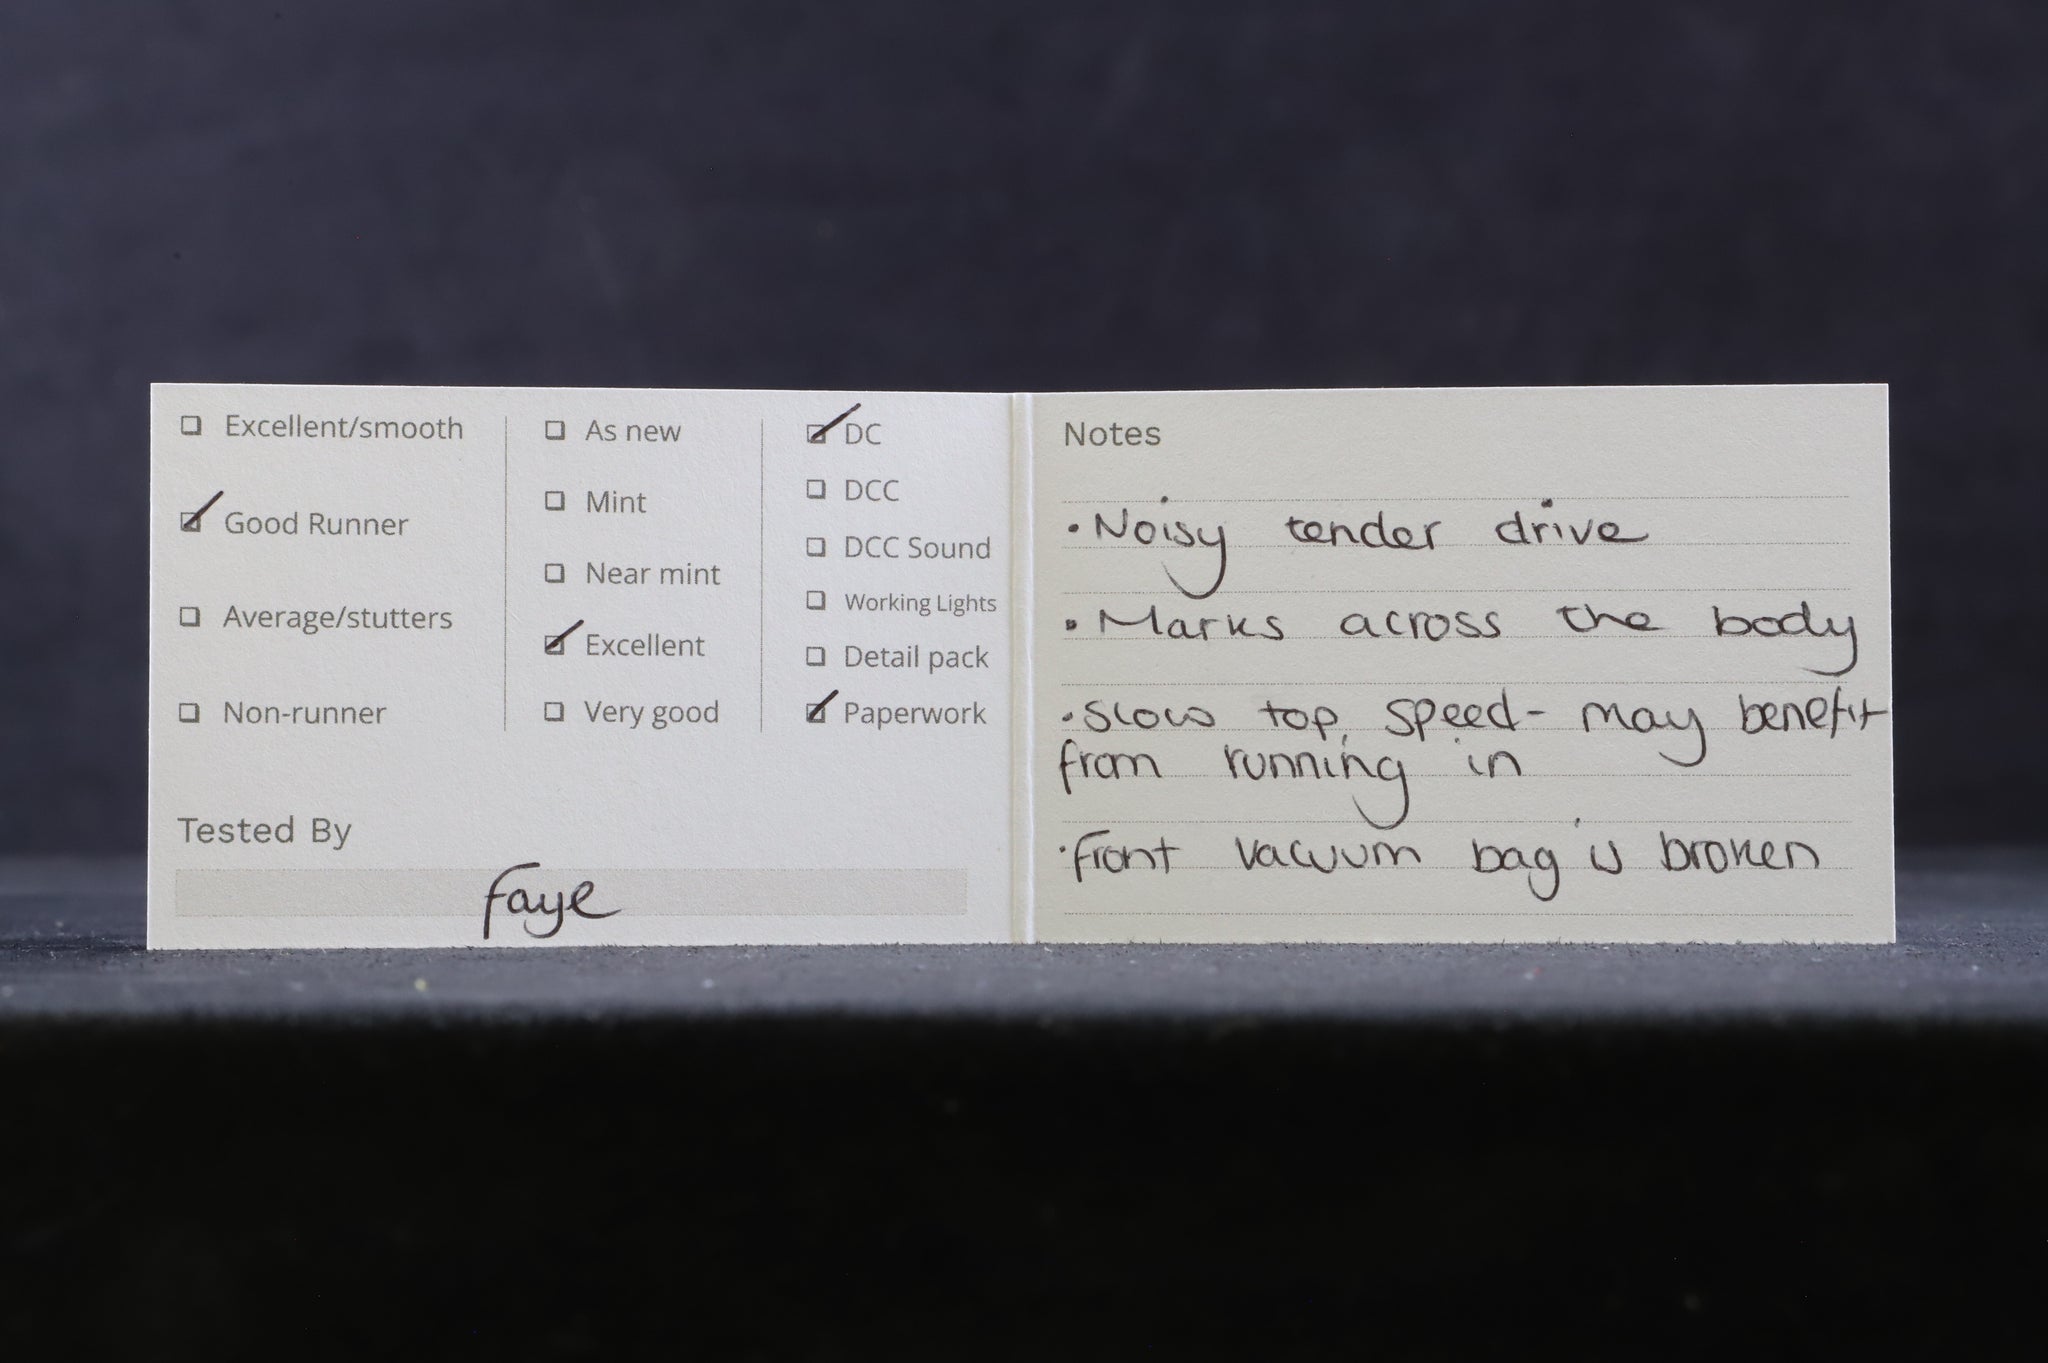 Excellent/smooth
Good Runner
Average/stutters
Non-runner
As new
Mint
Near mint
Excellent
Very good
DC
DCC
DCC Sound
Working Lights
Detail pack
Paperwork
Tested By
Faye
Notes
• Noisy tender drive
• Marks across the body
• Slow top speed - may benefit
from running in
• Front vacuum bag is broken